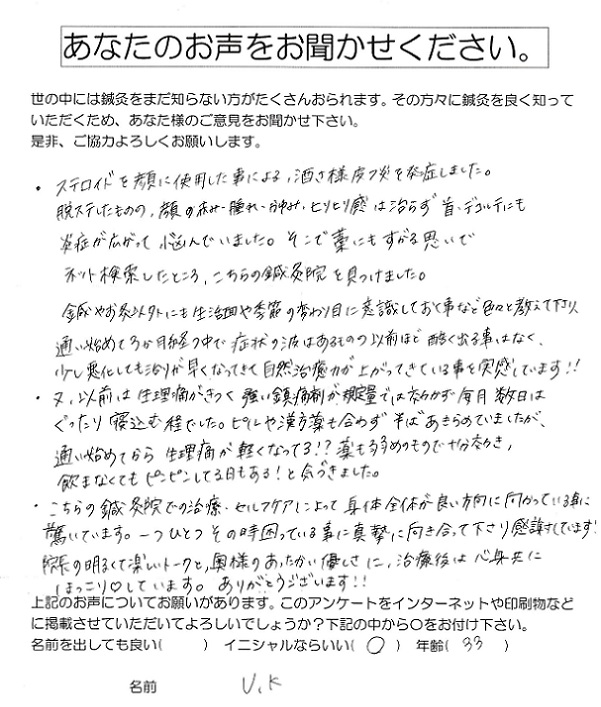 あなたのお声をお聞かせください。
世の中には鍼灸をまだ知らない方がたくさんおられます。その方々に鍼灸を良く知って
いただくため、あなた様のご意見をお聞かせ下さい。
是非、ご協力よろしくお願いします。
・ステロイドを顔に使用した事による、酒さ様皮フ炎を発症しました。
脱ステしたものの、顔の赤み・腫れ・かゆみ・ヒリヒリ感は治らず首・デコルテにも
炎症が広がって悩んでいました。そこで藁にもすがる思いで
ネット検索したところ、こちらの鍼灸院を見つけました。
鍼やお灸以外にも生活面や季節の変わり目に意識しておく事など色々と教えて下り、
通い始めて3か月経つ中で症状の波はあるものの以前ほど酷く出る事はなく、
少し悪化しても治りが早くなってきて自然治癒力が上がってきている事を実感しています!!
・又、以前は生理痛がきつく強い鎮痛剤が規定量では効かず毎月数日は
ぐったり寝込む程でした。ピルや漢方薬も合わず半ばあきらめていましたが、
通い始めてから生理痛が軽くなってる!?薬も弱めのもので十分効き、
飲まなくてもピンピンしてる日もある!と気づきました。
・こちらの鍼灸院での治療・セルフケアによって身体全体が良い方向に向かっている事に
驚いています。一つひとつその時困っている事に真摯に向き合って下さり感謝しています!
院長の明るくて楽しいトークと、奥様のあったかい優しさに、治療後は心身共に
ほっこり♡しています。ありがとうございます!!
上記のお声についてお願いがあります。このアンケートをインターネットや印刷物など
に掲載させていただいてよろしいでしょうか?下記の中から〇をお付け下さい。
名前を出しても良い( ) イニシャルならいい(〇) 年齢(33)
名前 U.K